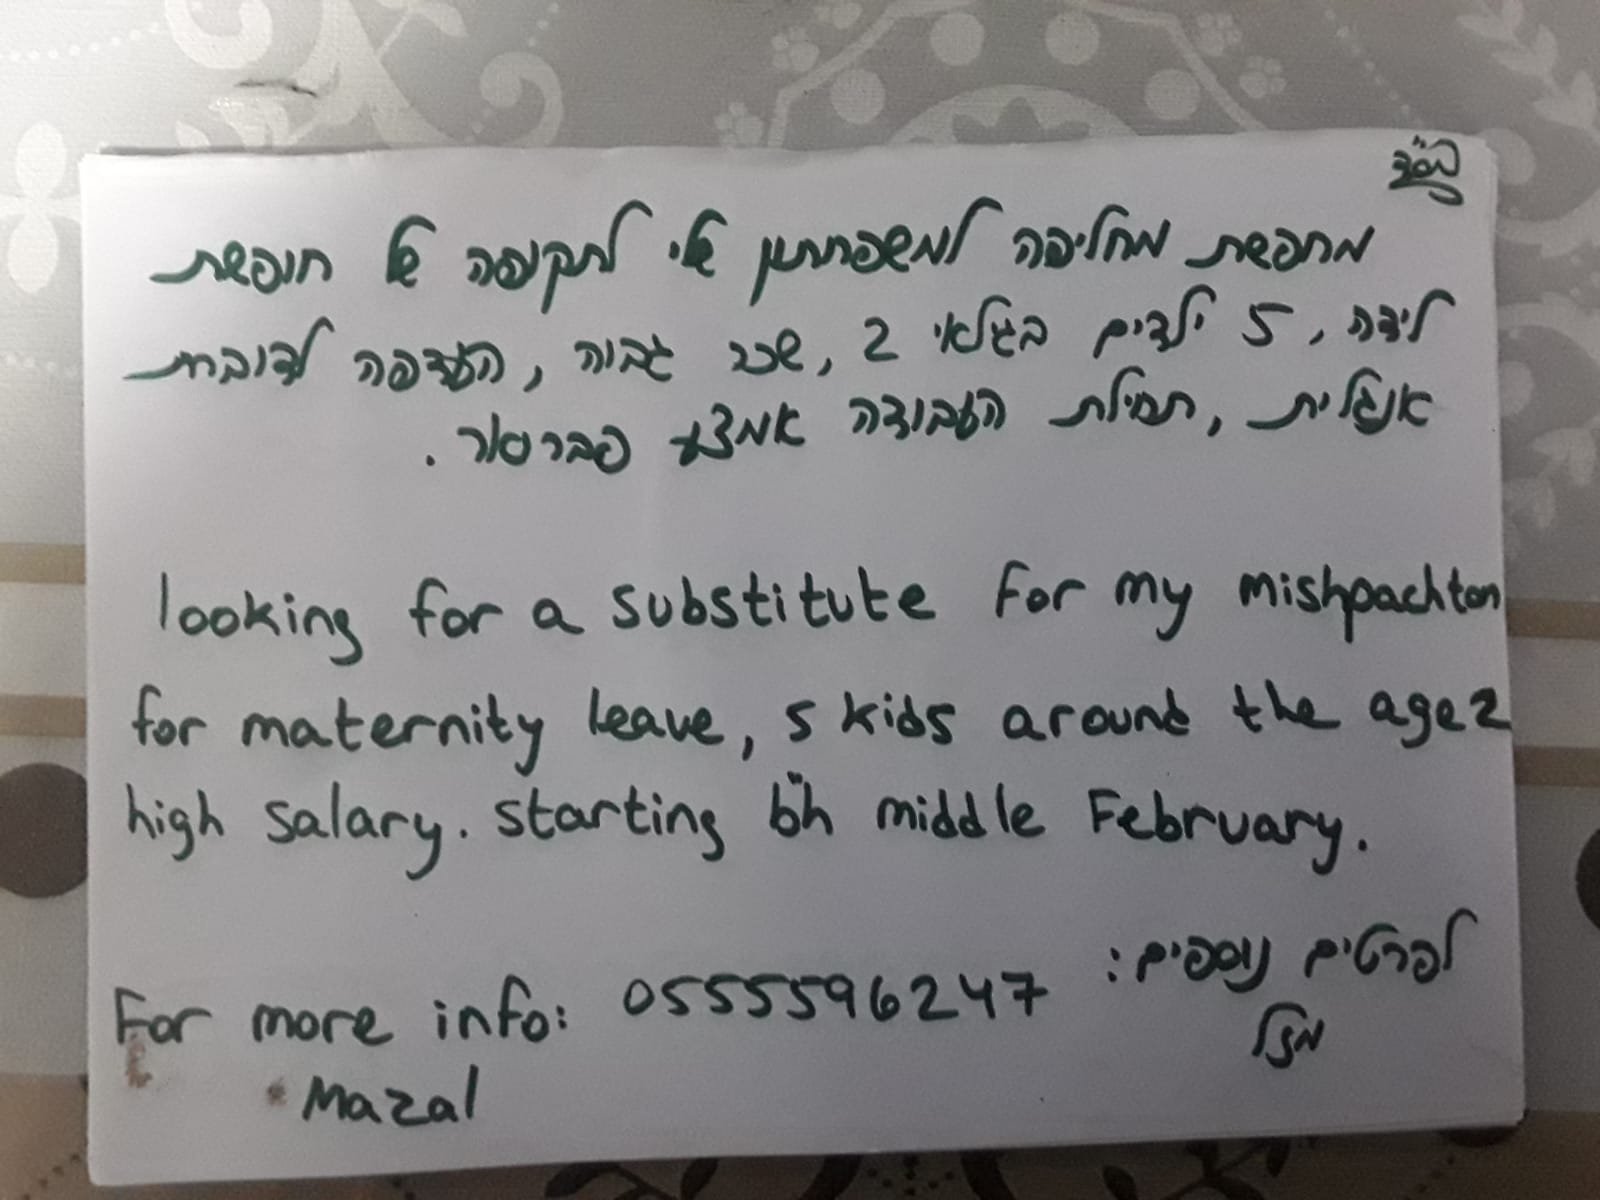 בס"ד
מחפשת מחליפה למשפחתון שלי לתקופה של חופשת
לידה, 5 ילדים בגילאי 2, שכר גבוה, העדפה לדוברת
אנגלית, תחילת העבודה אמצע פברואר.
looking for a substitute for my mishpachton
for maternity leave, 5 kids around the age 2
high salary. starting b"h middle February.
לפרטים נוספים:
For more info: 0555596247
מזל
Mazal